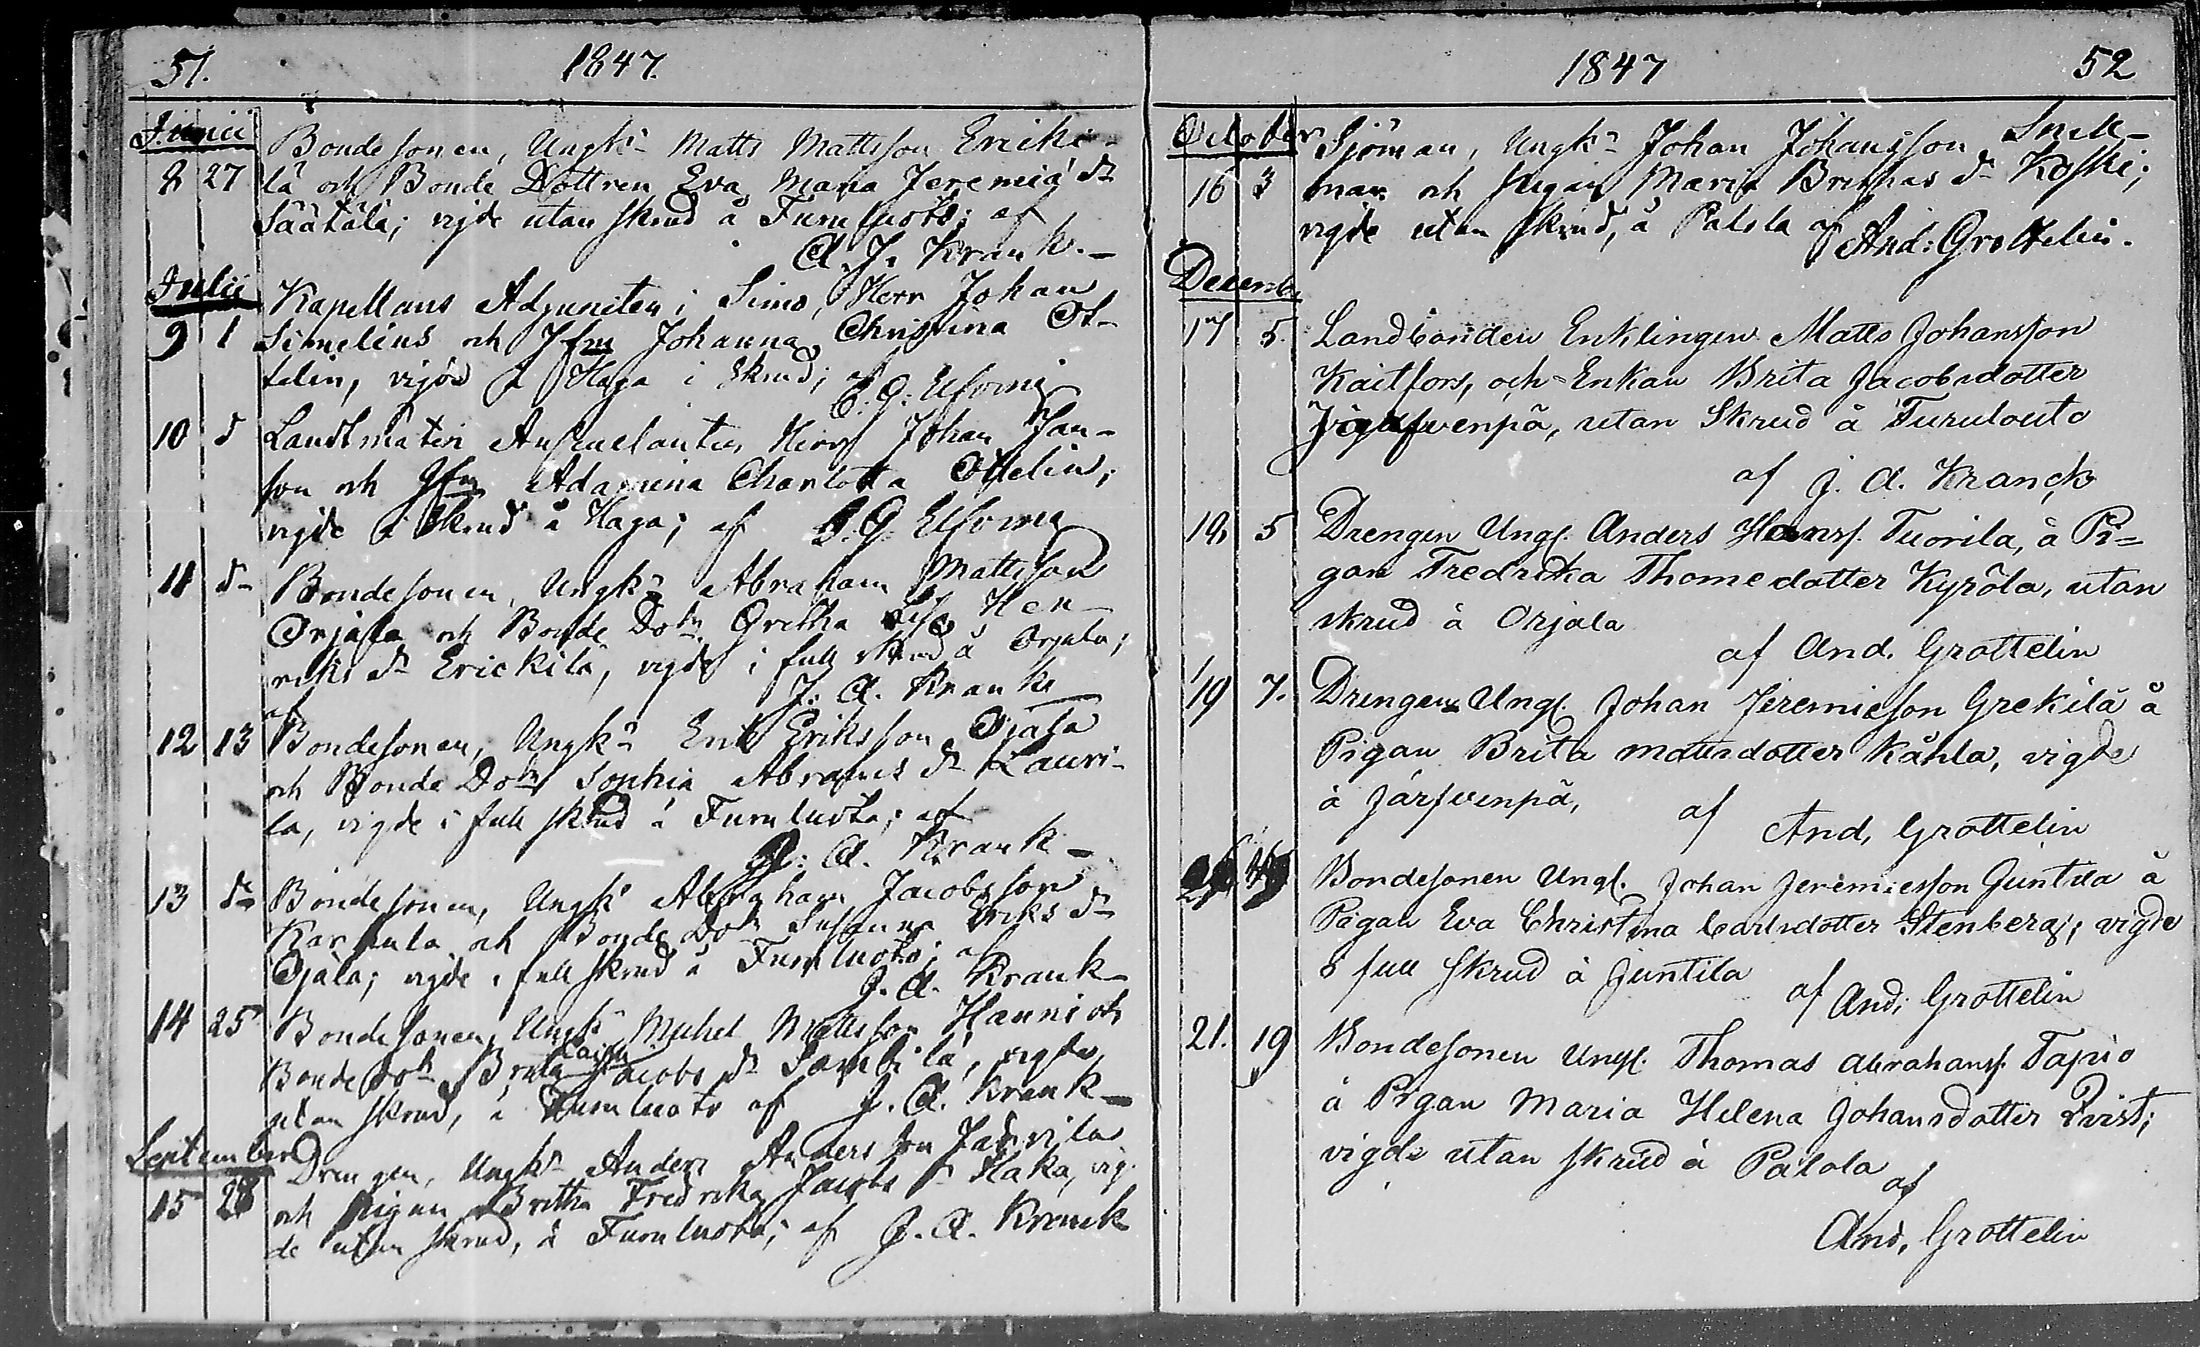 51. 1847.
Junii
8 27 Bondesonen, Ungk: Matts Mattsson Ericki-
lä och Bonde Dottren Eva Maria Jeremiæ dr
Säätälä; vigde utan skrud å Furuluoto; af
A. J. Krank.-
Julii
9 1 Kapellans Adjuncten i Simo, Herr Johan
Simelius och Jfru Johanna Christina Ot-
telin, vigde å Haga i Skrud; af
10 d Landtmäteri Auscultanten, Herr Johan Jan-
son och Jfru Adamina Charlotta Ottelin;
vigde i skrud å Haga; af
11 d- Bondesonen, Ungk: Abraham Mattsson
Orjala och Bonde Dotr Gretha Hen-
riks dr Erickilä, vigde i full skrud å Orjala;
af J. A. Krank
12 13 Bondesonen, Ungk: Erik Eriksson Ojala
och Bonde Dotr Sophia Abrams dr Lauri-
la, vigde i full skrud å Furuluoto; af
J. A. Krank-
13 d- Bondesonen, Ungk: Abraham Jacobsson
och Bonde Dotr Susanna Eriks dr
Ojala; vigde i full skrud å Furuluoto; af
J. A. Krank-
14 25 Bondesonen, Ungk: Michel Mattsson Hanni och
Bonde Dotr Brita Caisa Jacobs dr vigde
utan skrud, å Furuluoto af J. A. Krank-
September
Drengen, Ungk: Anders Andersson
15 28 och pigan Britha Fredrika Jacobs dr Haka, vig-
de utan skrud, å Furuluoto; af J. A. Kranck
1847 52
October
Sjöman, Ungk: Johan Johansson Snell-
16 3 man och pigan Maria Brithas dr Koski;
vigde utan skrud, å Palola af
And: Grottelin.
Decemb.
17 5. Landbonden Enklingen Matts Johansson
Kaitfors, och Enkan Brita Jacobsdotter
Järfvenpä, utan Skrud å Furulouto
af J. A. Kranck
18, 5 Drengen Ungl. Anders Hanss. Tuorila, å Pi=
gan Fredrika Thomedotter Kyrölä, utan
skrud å Orjala
af And. Grottelin
19 7. Drengen Ungl. Johan Jeremiesson Grekilä å
Pigan Brita Mattsdotter Kähla, vigde
å Järfvenpä,
af And, Grottelin
Bondesonen Ungl. Johan Jeremiesson Juntila å
Pigan Eva Christina Carlsdotter Stenberg; vigde
i full skrud å Juntila
af And; Grottelin
21. 19 Bondesonen Ungl. Thomas Abrahams. Tapio
å Pigan Maria Helena Johansdotter Qvist;
vigde utan skrud å Palola
af
And, Grottelin